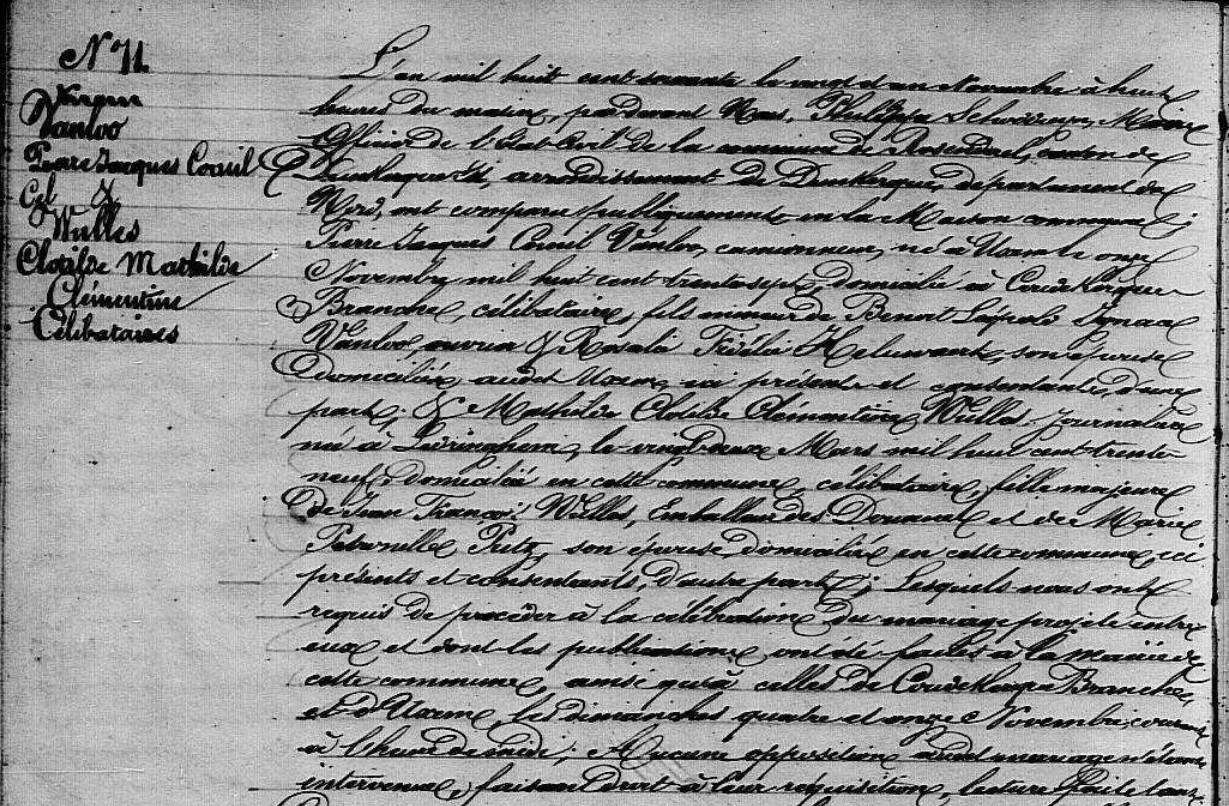 N° 71.
Vanloo
Pierre Jacques Cornil
Cel &
Wulles
Clotilde Mathilde
Clémentine
Célibataires
L'an mil huit cent soixante le vingt et un Novembre à huit
heures du matin, pardevant Nous, Philippe Maire
Officier de l'Etat-Civil de la commune de Rosendael, canton de
Dunkerque Est, arrondissement de Dunkerque, département du
Nord, ont comparu publiquement en la Maison commune ;
Pierre Jacques Cornil Vanloo, camionneur, né à Uxem le onze
Novembre mil huit cent trente sept, domicilié à Coudekerque
Branche, célibataire, fils mineur de Benoit Léopold Ignace
Vanloo, ouvrier & Rosalie Fidélie son épouse
domiciliés audit Uxem, ici présents et consentants, d'une
part ; & Mathilde Clotilde Clémentine Wulles Journalière
née à Ledringhem, le vingt-deux Mars mil huit cent trente-
neuf, domiciliée en cette commune, célibataire, fille majeure
de Jean François Wulles, Emballeur des Douanes et de Marie
Petronille Pritz, son épouse domiciliés en cette commune, ici
présents et consentants, d'autre part ; Lesquels nous ont
requis de procéder à la célébration du mariage projeté entre
eux et dont les publications ont été faites à la mairie de
cette commune, ainsi qu'à celles de Coudekerque Branche,
et d'Uxem, les dimanches quatre et onze Novembre, courant
à l'heure de midi ; Aucune opposition audit mariage n'étant
intervenue, faisant droit à leur réquisition, lecture faite tant